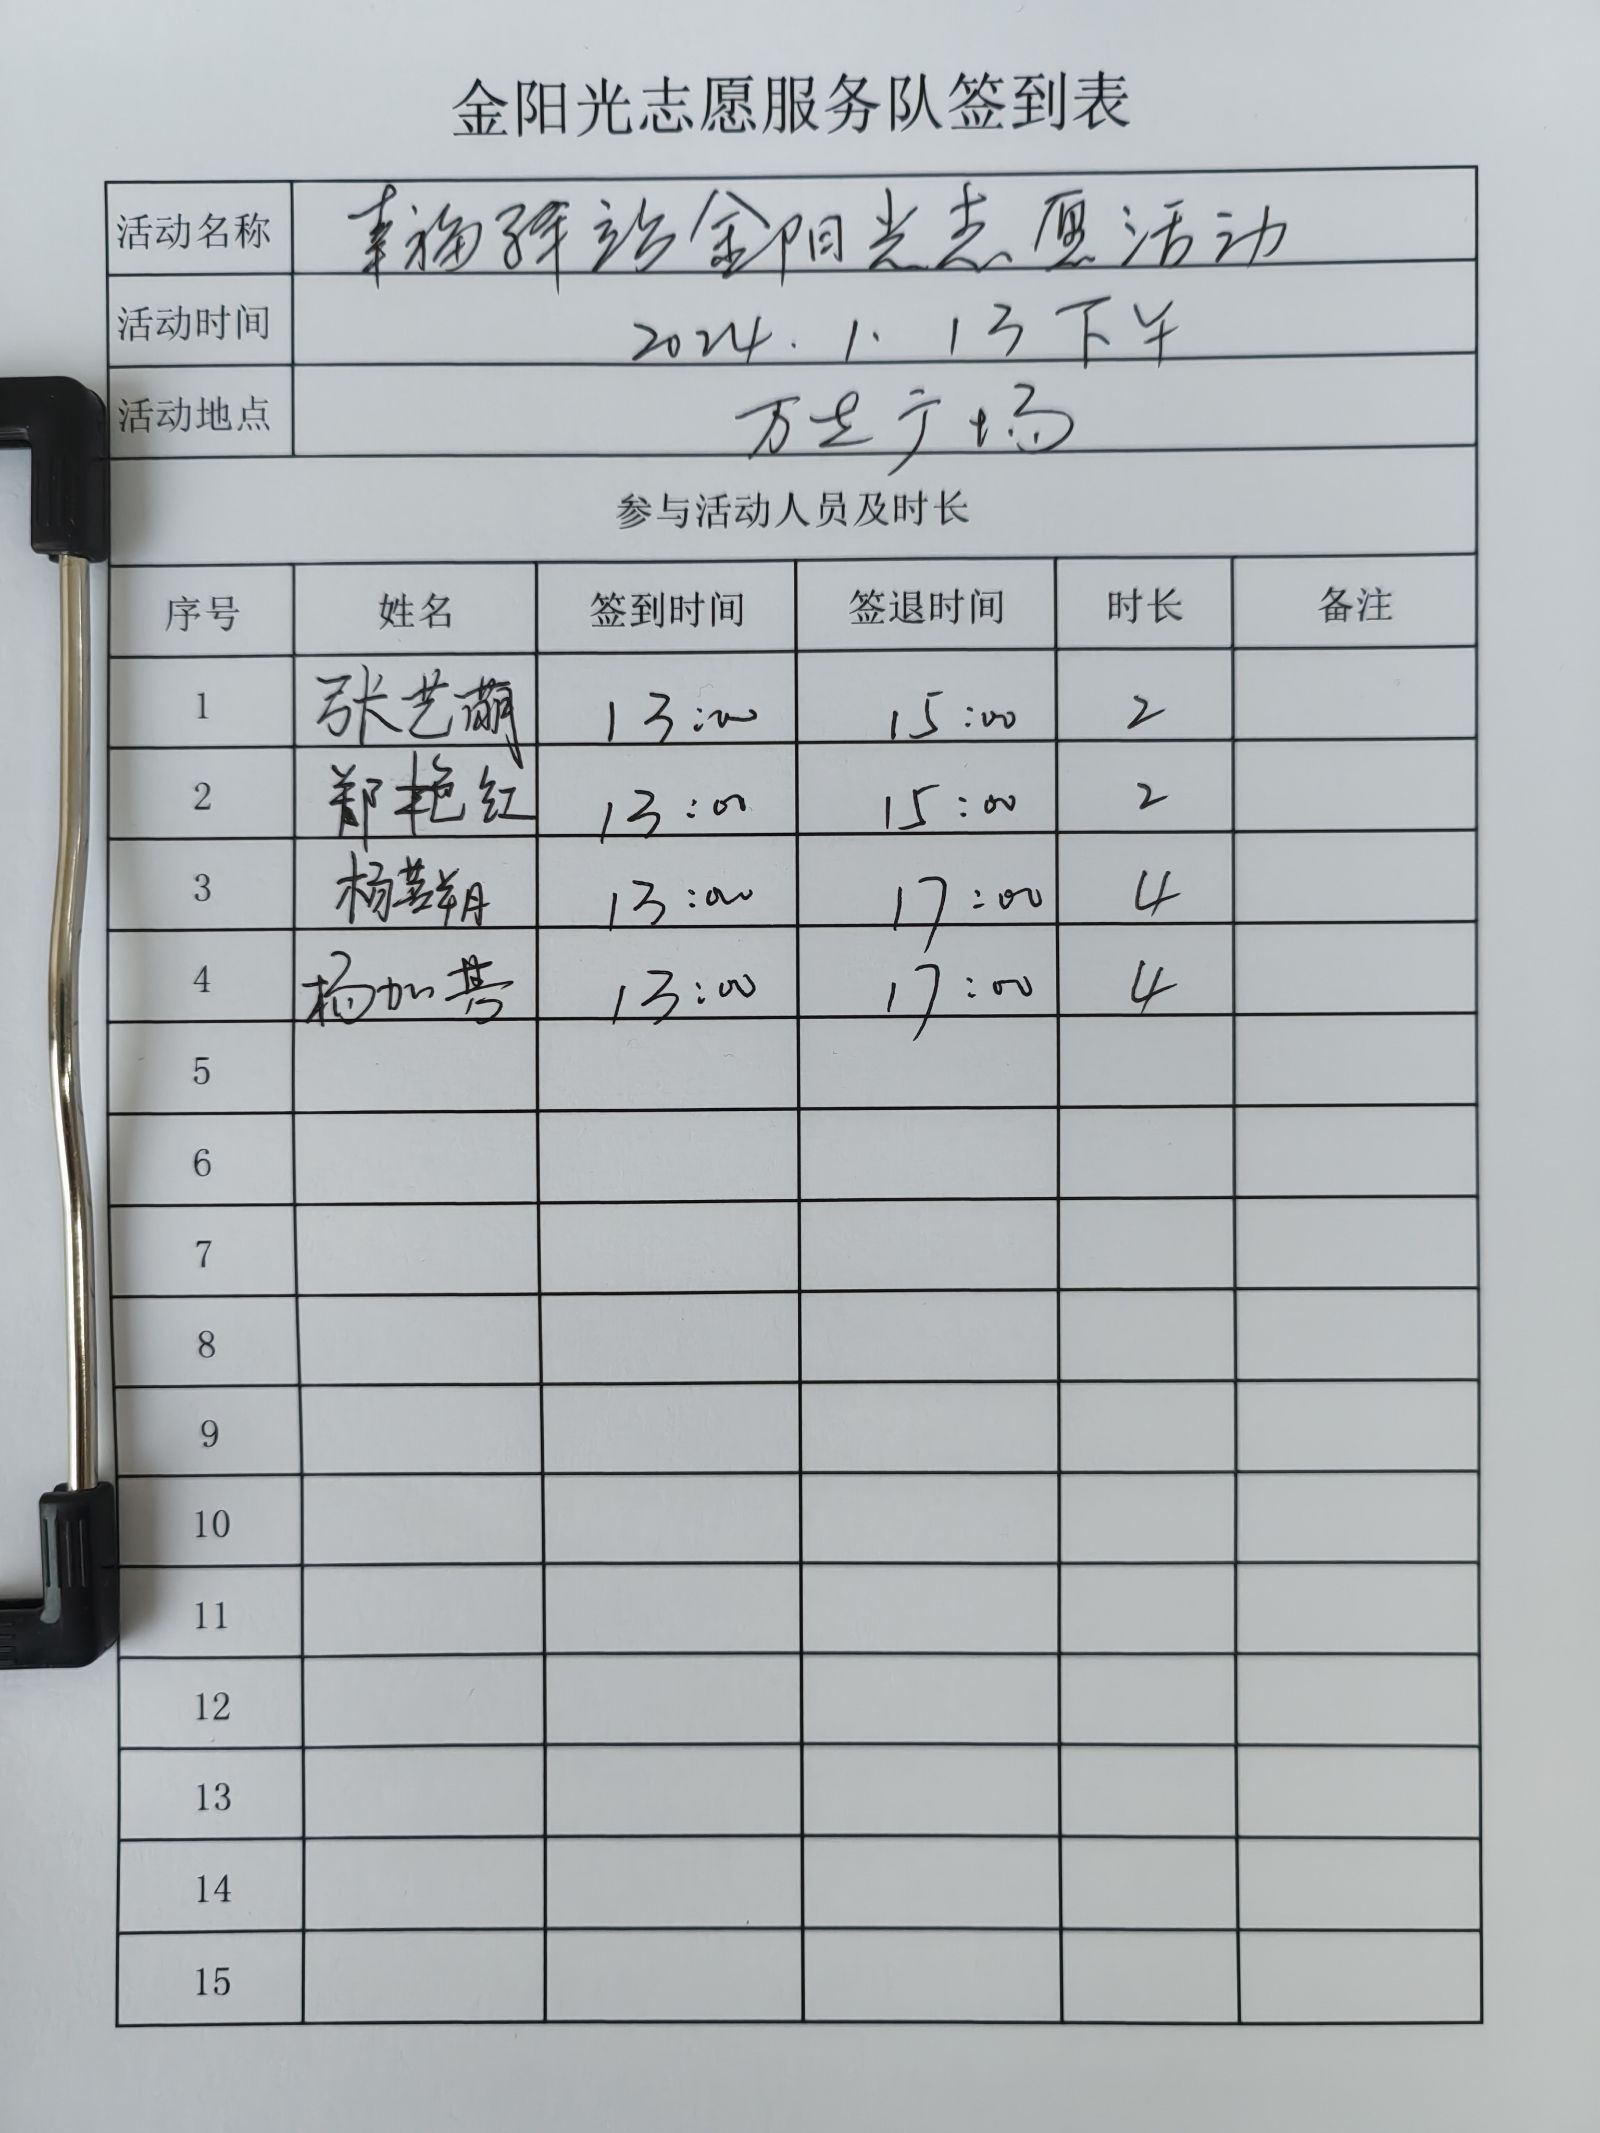 金阳光志愿服务队签到表
活动名称 幸福驿站金阳光志愿活动
活动时间 2024.1.13下午
活动地点 万达广场
参与活动人员及时长
序号 姓名 签到时间 签退时间 时长 备注
1 张艺萌 13:00 15:00 2
2 郑艳红 13:00 15:00 2
3 杨 13:00 17:00 4
4 杨加 13:00 17:00 4
5
6
7
8
9
10
11
12
13
14
15